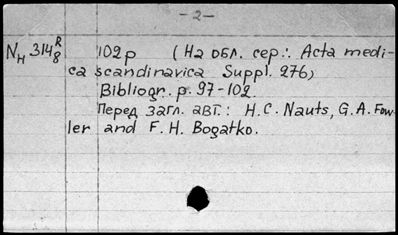 -2-
N_H 314 R/8 102p (На обл. сер.: Acta medi-
ca scandinavica Suppl. 276)
Bibliogr. p. 97-102.
Перед загл. авт.: H.C. Nauts, G.A. Fow-
ler and F.H. Bogatko.